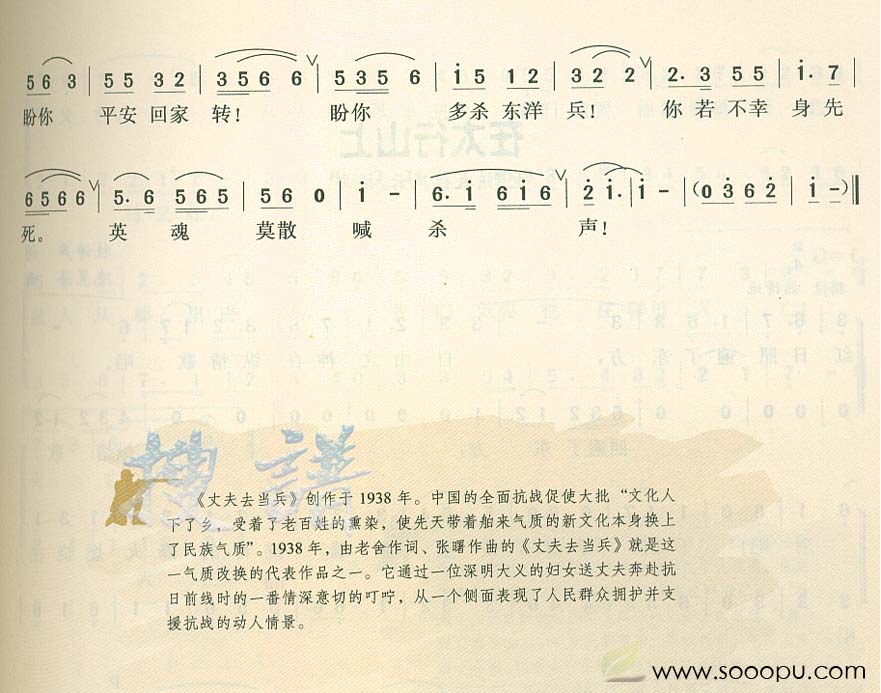 5 6 3 | 5 5 3 2 | 3 5 6 6 ∨ | 5 3 5 6 | i 5 1 2 | 3 2 2 ∨ | 2. 3 5 5 | i. 7 |
盼你 平安 回家 转! 盼你 多杀 东洋 兵! 你 若 不幸 身 先
6 5 6 6 ∨ | 5. 6 5 6 5 | 5 6 0 | i - | 6. i 6 i 6 ∨ | 2 i. | i - | (0 3 6 2 | i -) ‖
死。 英 魂 莫散 喊 杀 声!
《丈夫去当兵》创作于 1938 年。中国的全面抗战促使大批 “文化人
下了乡,受着了老百姓的熏染,使先天带着舶来气质的新文化本身换上
了民族气质”。1938 年,由老舍作词、张曙作曲的《丈夫去当兵》就是这
一气质改换的代表作品之一。它通过一位深明大义的妇女送丈夫奔赴抗
日前线时的一番情深意切的叮咛,从一个侧面表现了人民群众拥护并支
援抗战的动人情景。
www.sooopu.com